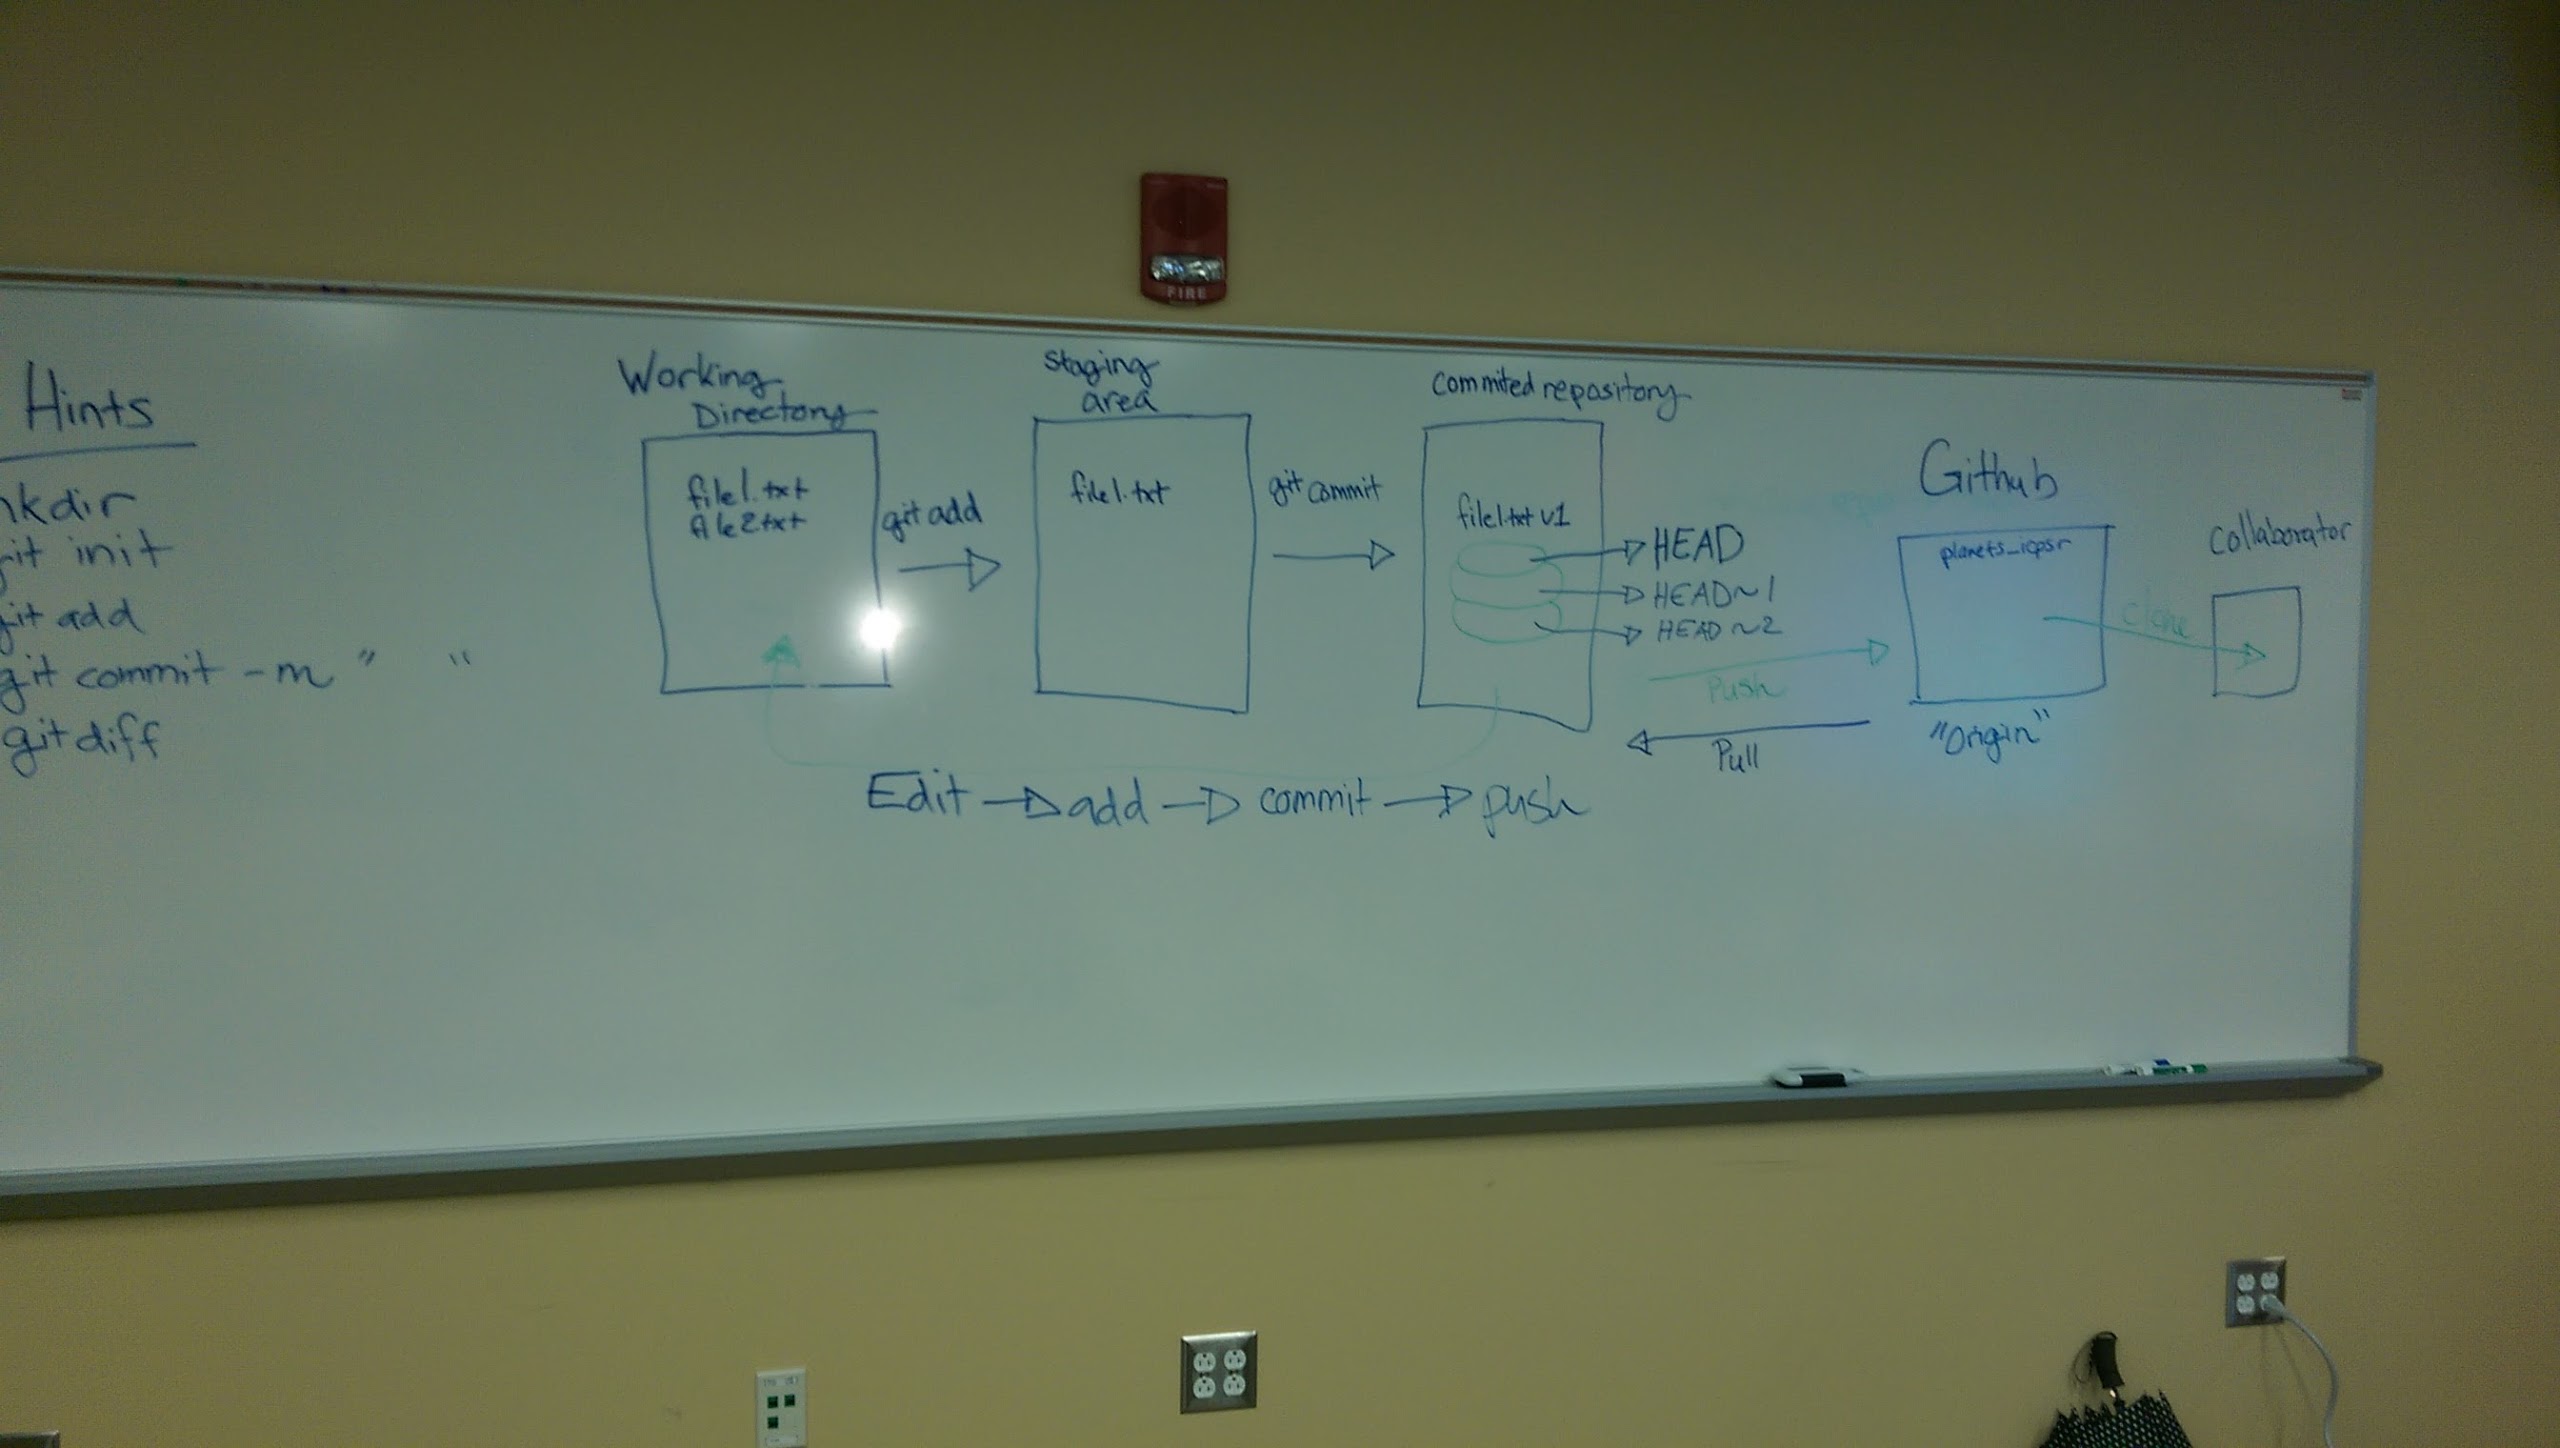 FIRE
Hints
mkdir
git init
git add
git commit -m " "
git diff
Working
Directory
file1.txt
file2.txt
git add
Staging
area
file1.txt
git commit
Commited repository
file1.txt v1
HEAD
HEAD~1
HEAD~2
Push
Pull
Github
planets_icpsr
"Origin"
Clone
Collaborator
Edit → add → commit → push